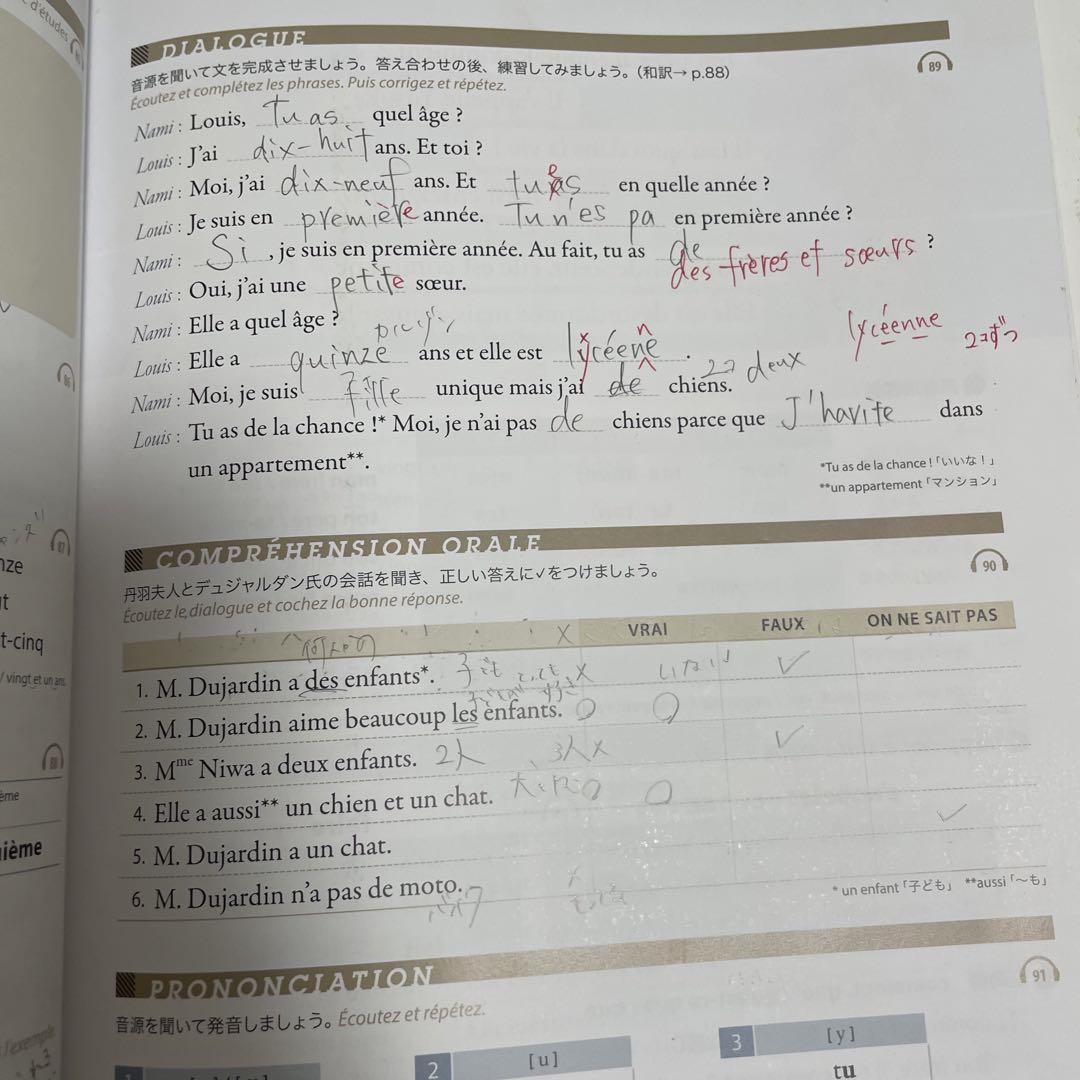 d'études
DIALOGUE
音源を聞いて文を完成させましょう。答え合わせの後、練習してみましょう。(和訳→ p.88)
89
Écoutez et complétez les phrases. Puis corrigez et répétez.
Nami : Louis, tu as quel âge ?
Louis : J'ai dix-huit ans. Et toi ?
Nami : Moi, j'ai dix-neuf ans. Et tu es en quelle année ?
Louis : Je suis en première année. Tu n'es pa en première année ?
Nami : Si , je suis en première année. Au fait, tu as de ?
des frères et sœurs
Louis : Oui, j'ai une petite sœur.
Nami : Elle a quel âge ?
Louis : Elle a quinze ans et elle est lycéene .
n
lycéenne
2コずつ
Nami : Moi, je suis fille unique mais j'ai de chiens.
deux
Louis : Tu as de la chance !* Moi, je n'ai pas de chiens parce que J'havite dans
un appartement**.
*Tu as de la chance !「いいな！」
**un appartement「マンション」
COMPRÉHENSION ORALE
90
丹羽夫人とデュジャルダン氏の会話を聞き、正しい答えに✓をつけましょう。
Écoutez le dialogue et cochez la bonne réponse.
VRAI FAUX ON NE SAIT PAS
1. M. Dujardin a des enfants*. 子ども × いない ✓
2. M. Dujardin aime beaucoup les enfants. ○ ○
3. Mme Niwa a deux enfants. 2人 3人 × ✓
4. Elle a aussi** un chien et un chat. ○ ○
5. M. Dujardin a un chat. ✓
6. M. Dujardin n'a pas de moto.
バイク
* un enfant「子ども」 **aussi「〜も」
PRONONCIATION
91
音源を聞いて発音しましょう。Écoutez et répétez.
2 [u]
3 [y]
tu
86
87
nze
t-cinq
/ vingt et un ans.
88
ème
ième
l'exemple